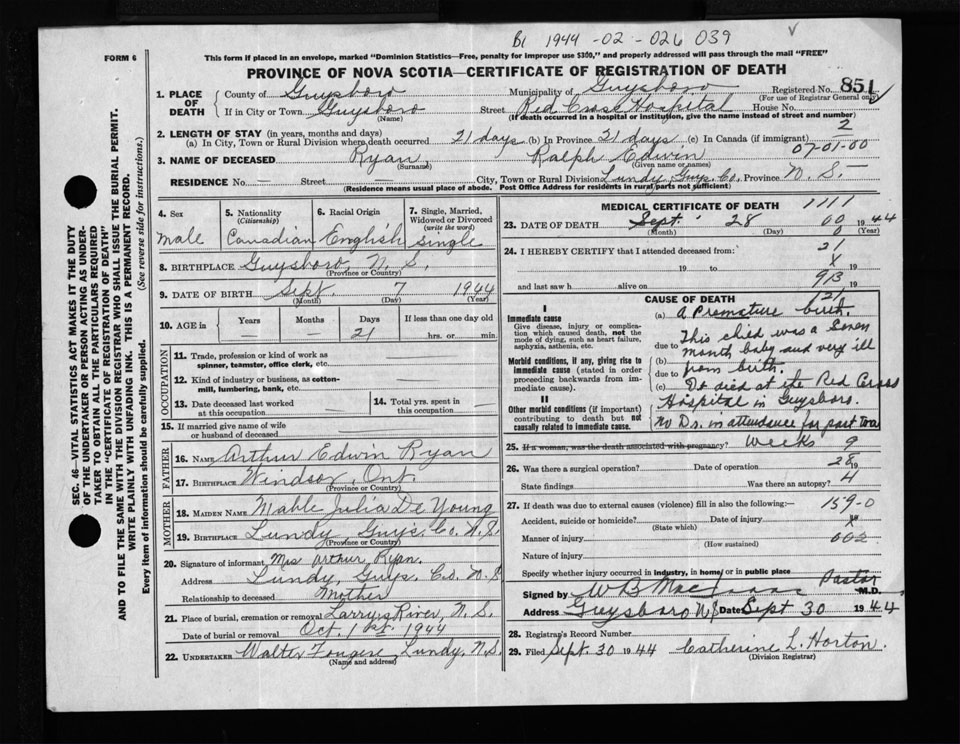 B1 1944 -02- 026 039
FORM 6
This form if placed in an envelope, marked "Dominion Statistics—Free, penalty for improper use $300," and properly addressed will pass through the mail "FREE"
PROVINCE OF NOVA SCOTIA—CERTIFICATE OF REGISTRATION OF DEATH
1. PLACE OF DEATH
County of Guysboro Municipality of Guysboro Registered No. 851
(For use of Registrar General only)
If in City or Town Guysboro Street Red Cross Hospital House No.
(Name) (If death occurred in a hospital or institution, give the name instead of street and number)
2. LENGTH OF STAY (in years, months and days) 2
(a) In City, Town or Rural Division where death occurred 21 days (b) In Province 21 days (c) In Canada (if immigrant)
07-01-00
3. NAME OF DECEASED Ryan, Ralph Edwin
(Surname) (Given name or names)
RESIDENCE No. — Street City, Town or Rural Division Lundy Guys. Co. Province N.S. —
(Residence means usual place of abode. Post Office Address for residents in rural parts not sufficient)
4. Sex
Male
5. Nationality
(Citizenship)
Canadian
6. Racial Origin
English
7. Single, Married, Widowed or Divorced
(write the word)
Single
8. BIRTHPLACE Guysboro, N.S.
(Province or Country)
9. DATE OF BIRTH Sept. 7 1944
(Month) (Day) (Year)
10. AGE in Years Months Days If less than one day old
— — 21 hrs. or min.
OCCUPATION
11. Trade, profession or kind of work as spinner, teamster, office clerk, etc.
12. Kind of industry or business, as cotton-mill, lumbering, bank, etc.
13. Date deceased last worked at this occupation
14. Total yrs. spent in this occupation —
15. If married give name of wife or husband of deceased
FATHER
16. NAME Arthur Edwin Ryan
17. BIRTHPLACE Windsor, Ont.
(Province or Country)
MOTHER
18. MAIDEN NAME Mable Julia De Young
19. BIRTHPLACE Lundy, Guys. Co. N.S.
(Province or Country)
20. Signature of informant Mrs Arthur Ryan.
Address Lundy, Guys. Co. N.S
Relationship to deceased Mother
21. Place of burial, cremation or removal Larrys River, N.S.
Date of burial or removal Oct. 1st. 1944
22. UNDERTAKER Walter Fougere, Lundy, N.S.
(Name and address)
MEDICAL CERTIFICATE OF DEATH 1111
23. DATE OF DEATH Sept. 28 00 1944
(Month) (Day) 0 (Year)
24. I HEREBY CERTIFY that I attended deceased from: 21
19 to X 19
and last saw h alive on 913 19
CAUSE OF DEATH 121
I
Immediate cause
Give disease, injury or complication which caused death, not the mode of dying, such as heart failure, asphyxia, asthenia, etc.
Morbid conditions, if any, giving rise to immediate cause (stated in order proceeding backwards from immediate cause).
II
Other morbid conditions (if important) contributing to death but not causally related to immediate cause.
(a) A Premature birth.
due to This child was a Seven
(b) month baby and very ill
due to from birth.
(c) It died at the Red Cross
Hospital in Guysboro.
No Drs. in attendance for past two
25. If a woman, was the death associated with pregnancy? weeks 9
26. Was there a surgical operation? Date of operation 28 19
State findings Was there an autopsy? 4
27. If death was due to external causes (violence) fill in also the following:— 159-0
Accident, suicide or homicide? Date of injury X 19
(State which)
Manner of injury 002
(How sustained)
Nature of injury
Specify whether injury occurred in industry, in home, or in public place
Signed by W B MacIsaac Pastor M.D.
Address Guysboro NS Date Sept 30 1944
28. Registrar's Record Number
29. Filed Sept. 30 1944 Catherine L. Horton.
(Division Registrar)
SEC. 46—VITAL STATISTICS ACT MAKES IT THE DUTY
OF THE UNDERTAKER OR PERSON ACTING AS UNDER-
TAKER TO OBTAIN ALL THE PARTICULARS REQUIRED
IN THE "CERTIFICATE OF REGISTRATION OF DEATH"
AND TO FILE THE SAME WITH THE DIVISION REGISTRAR WHO SHALL ISSUE THE BURIAL PERMIT.
WRITE PLAINLY WITH UNFADING INK. THIS IS A PERMANENT RECORD.
Every item of information should be carefully supplied. (See reverse side for instructions.)